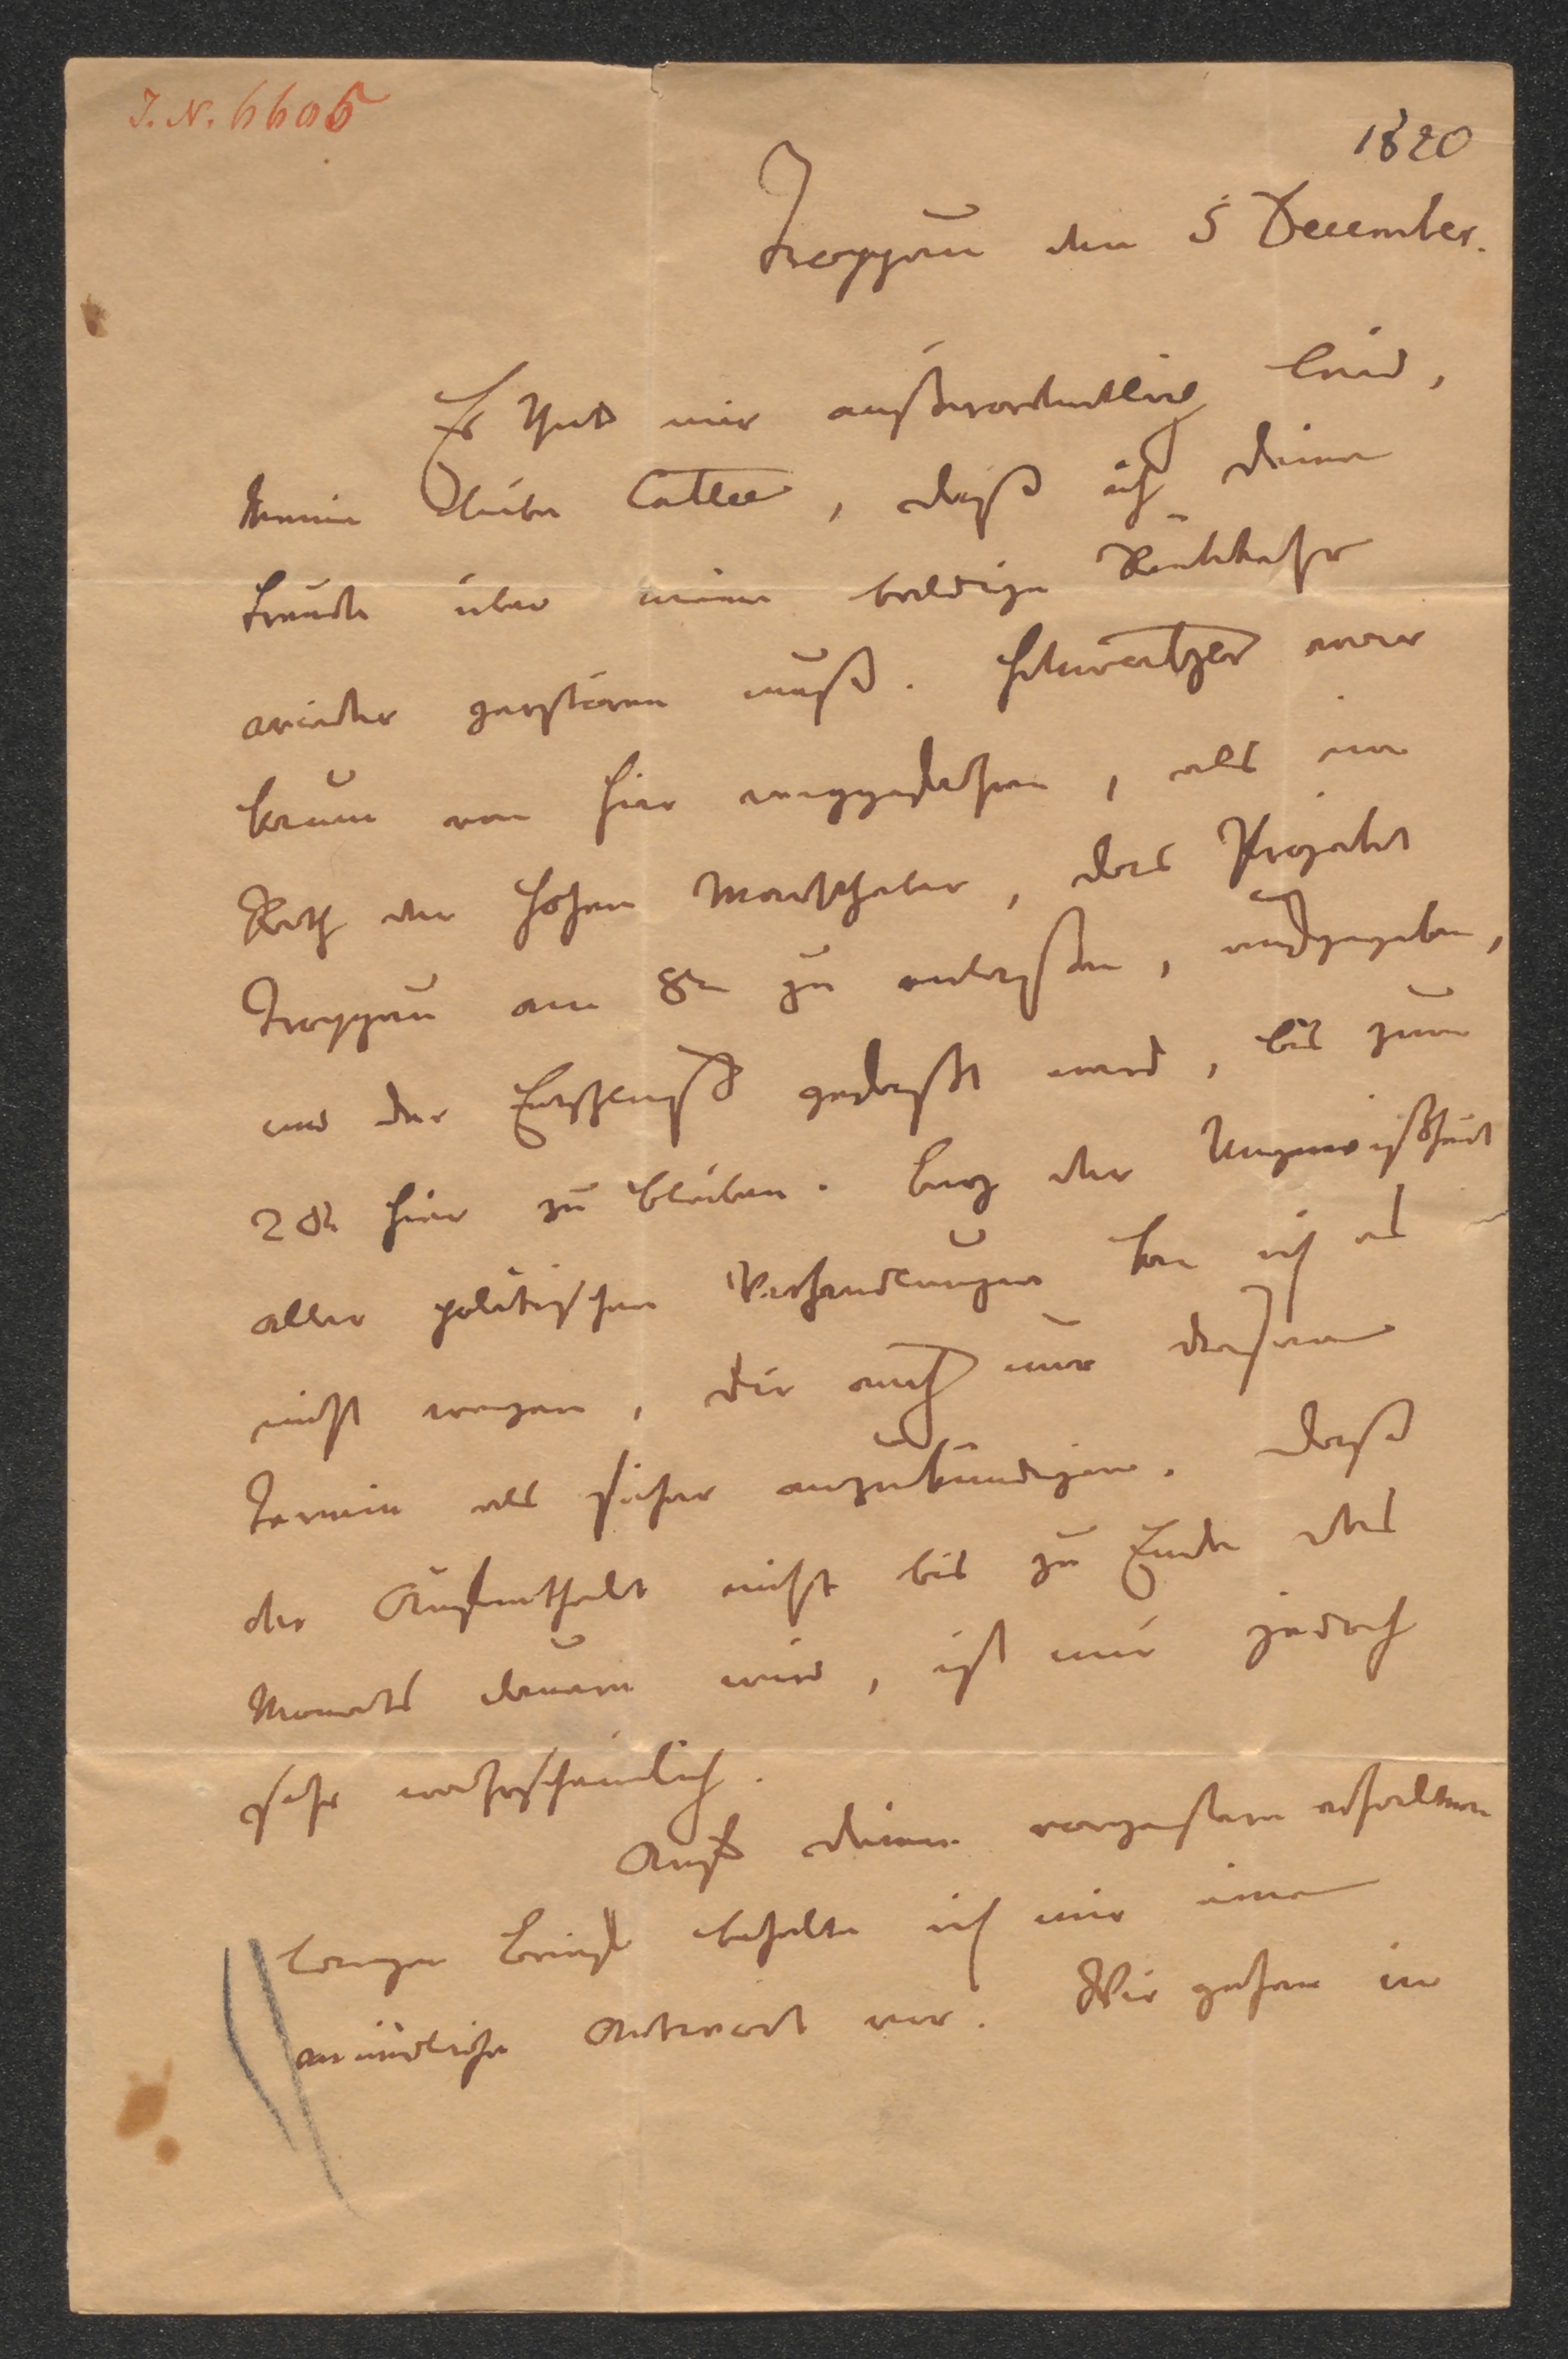 J. N. 6606
1820
Troppau den 5 December.
Es thut mir außerordentlich leid,
meine liebe Cattee, daß ich deine
Freude über meine baldige Rückkehr
wieder zerstören muß. Schweitzer war
kaum von hier weggefahren, als im
Rath der hohen Machthaber, das Projekt
Troppau am 8n zu verlassen, aufgegeben,
und der Entschluß gefaßt ward, bis zum
20n hier zu bleiben. Bey der Ungewißheit
aller politischen Verhandlungen kan ich es
nicht wagen, dir auch nur diesen
Termin als sicher anzukündigen. Daß
der Aufenthalt nicht bis zu Ende des
Monats dauern wird, ist mir jedoch
sehr wahrscheinlich.
Auf deinen vorgestern erhaltenen
langen Brief behalte ich mir eine
mündliche Antwort vor. Wir gehen in